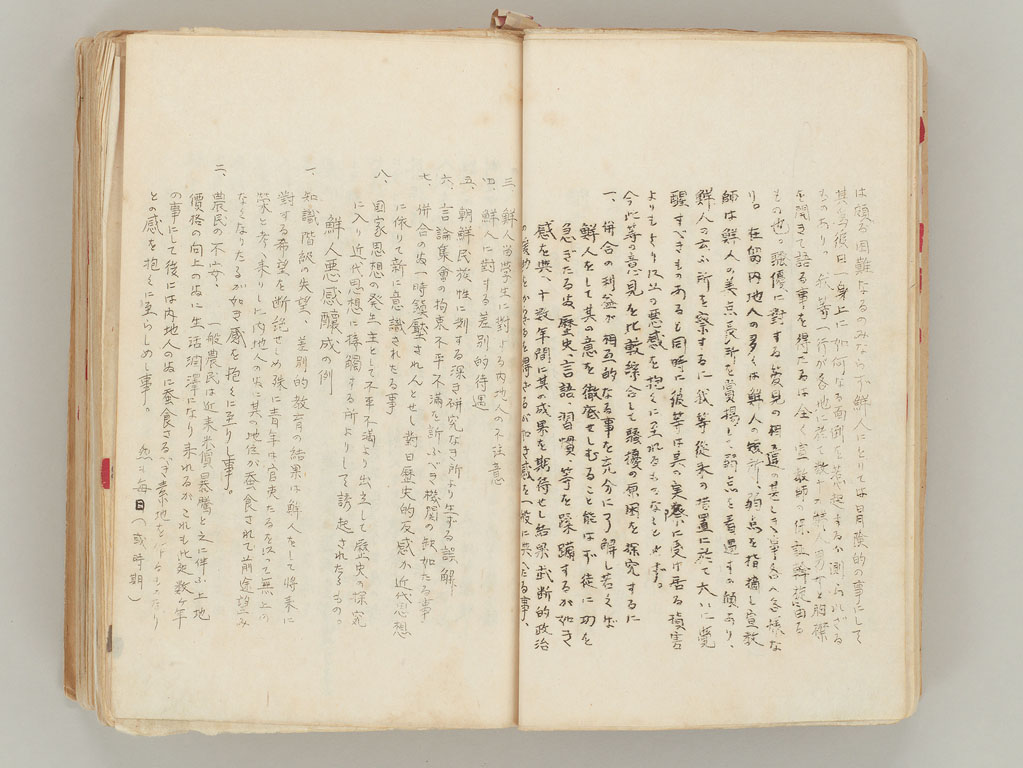 は頗る困難なるのみならず鮮人にとりては冒険的の事にして
其為後日一身上に如何なる面倒を惹起するか測られざる
ものあり。我等一行が各地に於て数十の鮮人男女と胸襟
を開きて語る事を得たるは全く宣教師の保証斡旋による
もの也。騒擾に対する意見の相違の甚しき
り。在留内地人の多くは鮮人の短所、弱点を指摘し宣教
師は鮮人の美点長所を賞揚し弱点を看過する傾あり、
鮮人の云ふ所を察するに我等従来の措置に於て大いに覚
醒すべきものあると同時に彼等は其の実際に受け居る損害
よりもより以上の悪感を抱くに至れるものなるとす。
今此等の意見を比較綜合して騒擾の原因を探究するに
一、併合の利益が相互的なる事を充分に了解し若くば
鮮人をして其の意を徹底せしむること能はず徒に功を
急ぎたる為歴史、言語、習慣、等を蹂躙するが如き
感を與へ十数年間に其の成果を期待せし結果武断的政治
三、鮮人留学生に対する内地人の不注意
四、鮮人に対する差別的待遇
五、朝鮮民族性に対する深き研究なき所より生ずる誤解
六、言論集会の拘束不平不満を訴ふべき機関の欠如たる事
七、併合の為一時鎮圧され人とせし対日歴史的反感が近代思想
に依りて新に意識されたる事
八、国家思想の発生主として不平不満より出立して歴史の探究
に入り近代思想に接觸する所よりして誘起されたるもの。
鮮人悪感醸成の例
一、知識階級の失望、差別的教育の結果は鮮人をして将来に
対する希望を断絶せしめ殊に青年は官吏たるを以て無上の
栄と考へ来りしに内地人の為に其の地位が蚕食されて前途望み
なくなりたるが如き感を抱くに至りし事。
二、農民の不安、一般農民は近来米価暴騰と之に伴ふ土地
価格の向上の為に生活潤沢になり来れるがこれも此数ヶ年
の事にして後には内地人の為に蚕食さるべき素地を
との感を抱くに至らしめし事。
毎日（或時期）